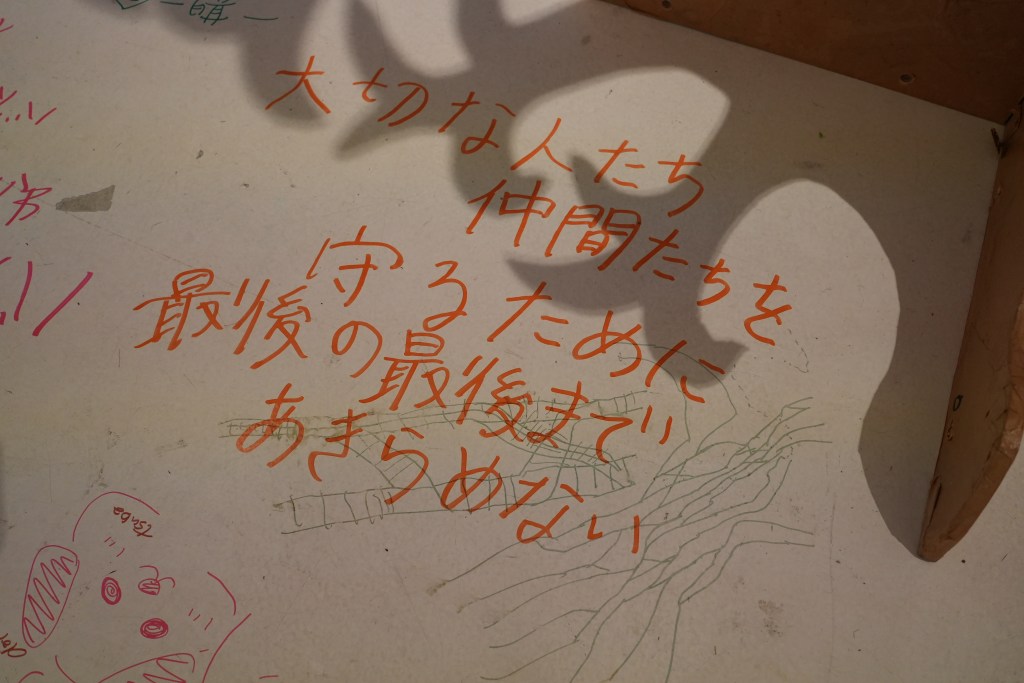 大切な人たち
仲間たちを
守るために
最後の最後まで
あきらめない
tsuba